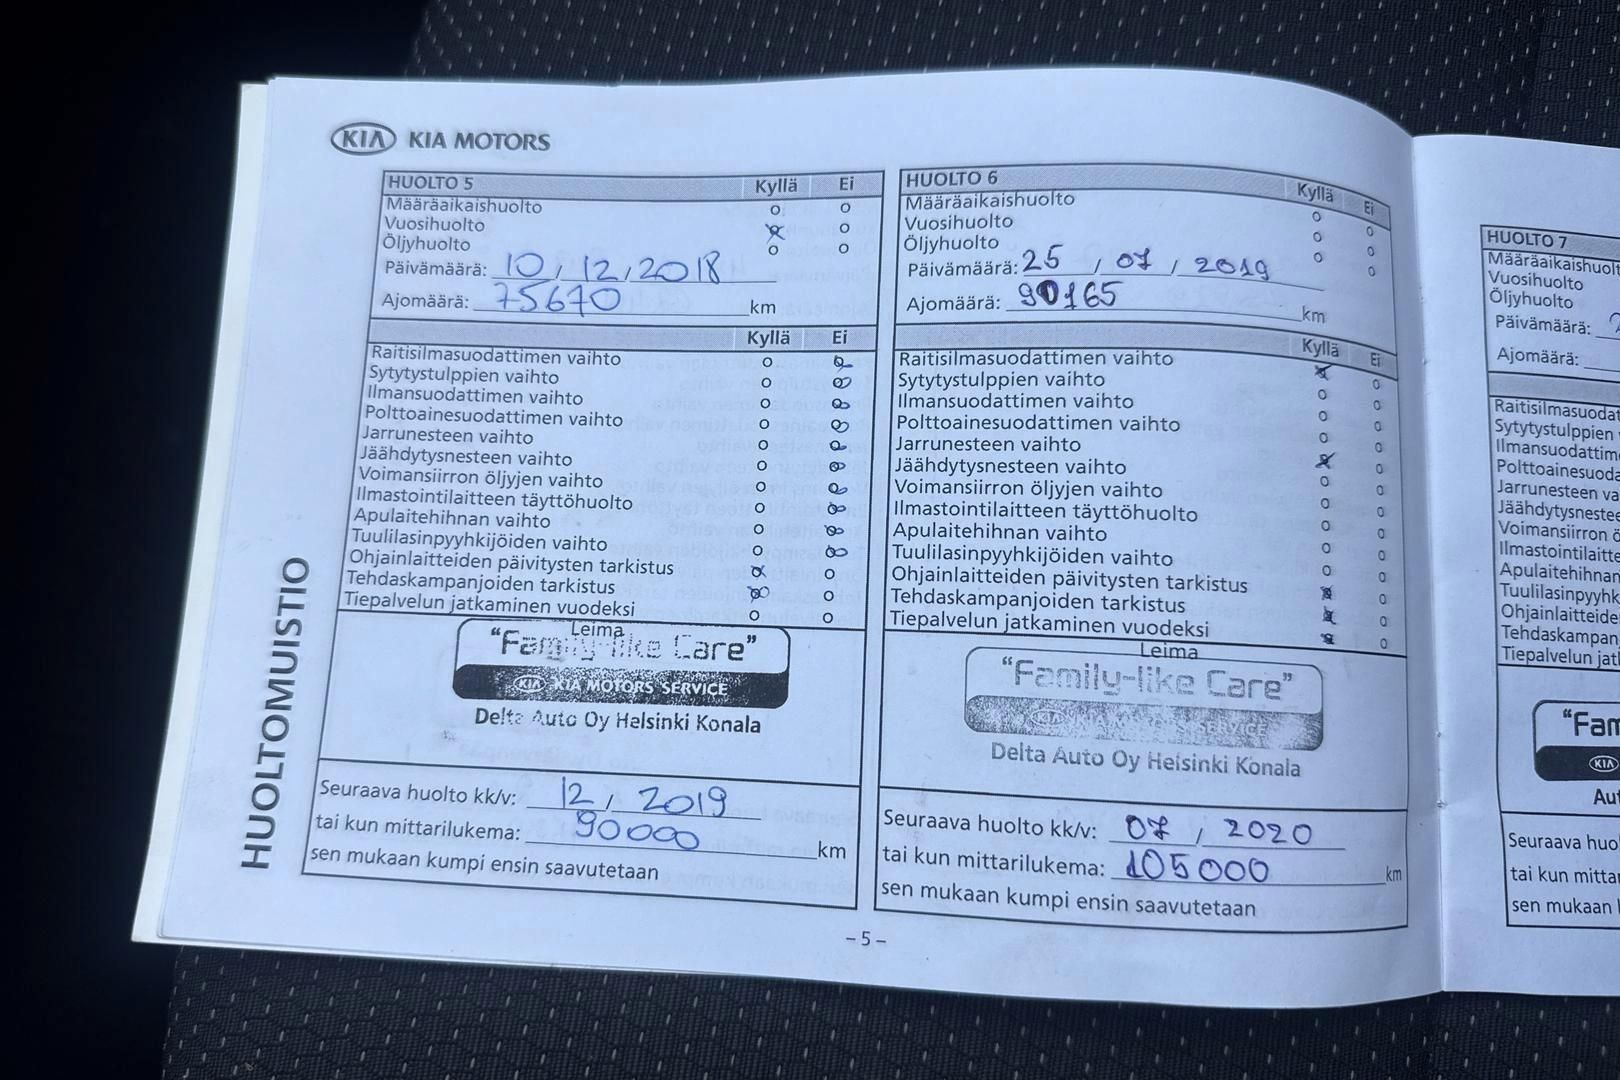 KIA KIA MOTORS
HUOLTOMUISTIO
HUOLTO 5 Kyllä Ei
Määräaikaishuolto
Vuosihuolto
Öljyhuolto
Päivämäärä: 10 / 12 / 2018
Ajomäärä: 75670 km
Kyllä Ei
Raitisilmasuodattimen vaihto
Sytytystulppien vaihto
Ilmansuodattimen vaihto
Polttoainesuodattimen vaihto
Jarrunesteen vaihto
Jäähdytysnesteen vaihto
Voimansiirron öljyjen vaihto
Ilmastointilaitteen täyttöhuolto
Apulaitehihnan vaihto
Tuulilasinpyyhkijöiden vaihto
Ohjainlaitteiden päivitysten tarkistus
Tehdaskampanjoiden tarkistus
Tiepalvelun jatkaminen vuodeksi
Leima
"Family-like Care"
KIA KIA MOTORS SERVICE
Delta Auto Oy Helsinki Konala
Seuraava huolto kk/v: 12 / 2019
tai kun mittarilukema: 90000 km
sen mukaan kumpi ensin saavutetaan
HUOLTO 6 Kyllä Ei
Määräaikaishuolto
Vuosihuolto
Öljyhuolto
Päivämäärä: 25 / 07 / 2019
Ajomäärä: 90165 km
Kyllä Ei
Raitisilmasuodattimen vaihto
Sytytystulppien vaihto
Ilmansuodattimen vaihto
Polttoainesuodattimen vaihto
Jarrunesteen vaihto
Jäähdytysnesteen vaihto
Voimansiirron öljyjen vaihto
Ilmastointilaitteen täyttöhuolto
Apulaitehihnan vaihto
Tuulilasinpyyhkijöiden vaihto
Ohjainlaitteiden päivitysten tarkistus
Tehdaskampanjoiden tarkistus
Tiepalvelun jatkaminen vuodeksi
Leima
"Family-like Care"
KIA KIA MOTORS SERVICE
Delta Auto Oy Helsinki Konala
Seuraava huolto kk/v: 07 / 2020
tai kun mittarilukema: 105000 km
sen mukaan kumpi ensin saavutetaan
- 5 -
HUOLTO 7
Määräaikaishuolt
Vuosihuolto
Öljyhuolto
Päivämäärä:
Ajomäärä:
Raitisilmasuodat
Sytytystulppien
Ilmansuodattim
Polttoainesuoda
Jarrunesteen va
Jäähdytysnestee
Voimansiirron ö
Ilmastointilaitte
Apulaitehihnan
Tuulilasinpyyhk
Ohjainlaitteide
Tehdaskampan
Tiepalvelun jatl
"Fam
KIA
Aut
Seuraava huo
tai kun mitta
sen mukaan